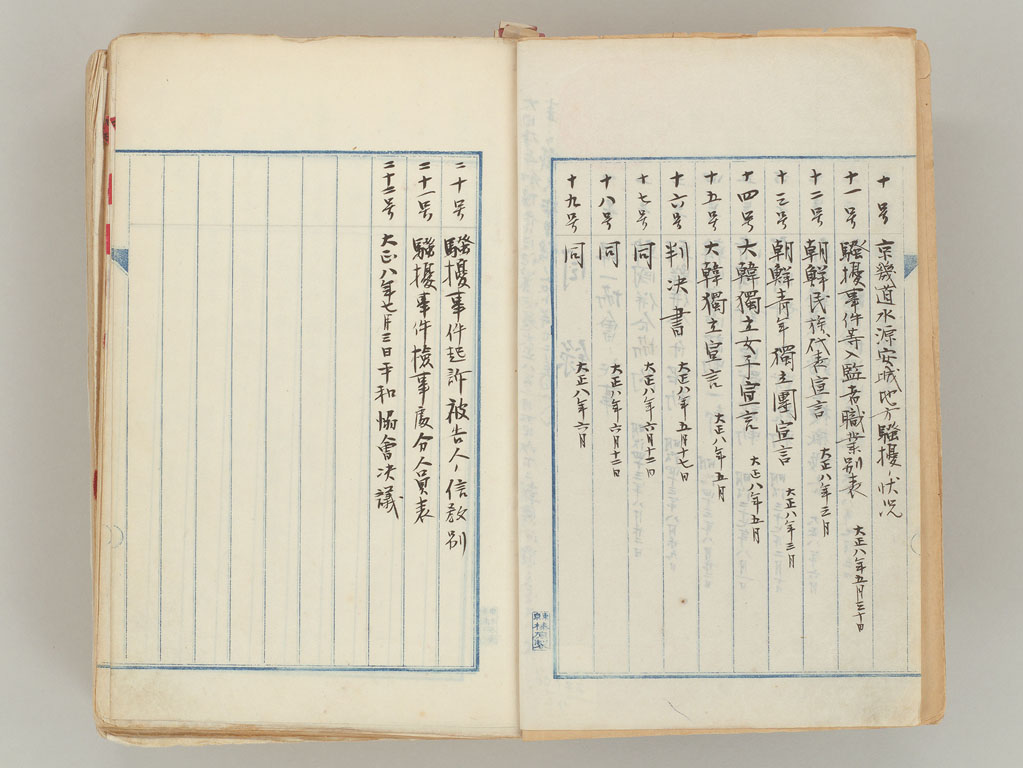 十号 京畿道水源安城地方騒擾ノ状況
十一号 騒擾事件等入監者職業別表 大正八年五月三十日
十二号 朝鮮民族代表宣言 大正八年三月
十三号 朝鮮青年獨立團宣言 大正八年三月
十四号 大韓獨立女子宣言 大正八年五月
十五号 大韓獨立宣言 大正八年五月
十六号 判決書 大正八年五月十七日
十七号 同 大正八年六月十二日
十八号 同 大正八年六月十二日
十九号 同 大正八年六月
二十号 騒擾事件起訴被告人ノ信教別
二十一号 騒擾事件檢事処分人員表
二十二号 大正八年七月三日平和協會決議